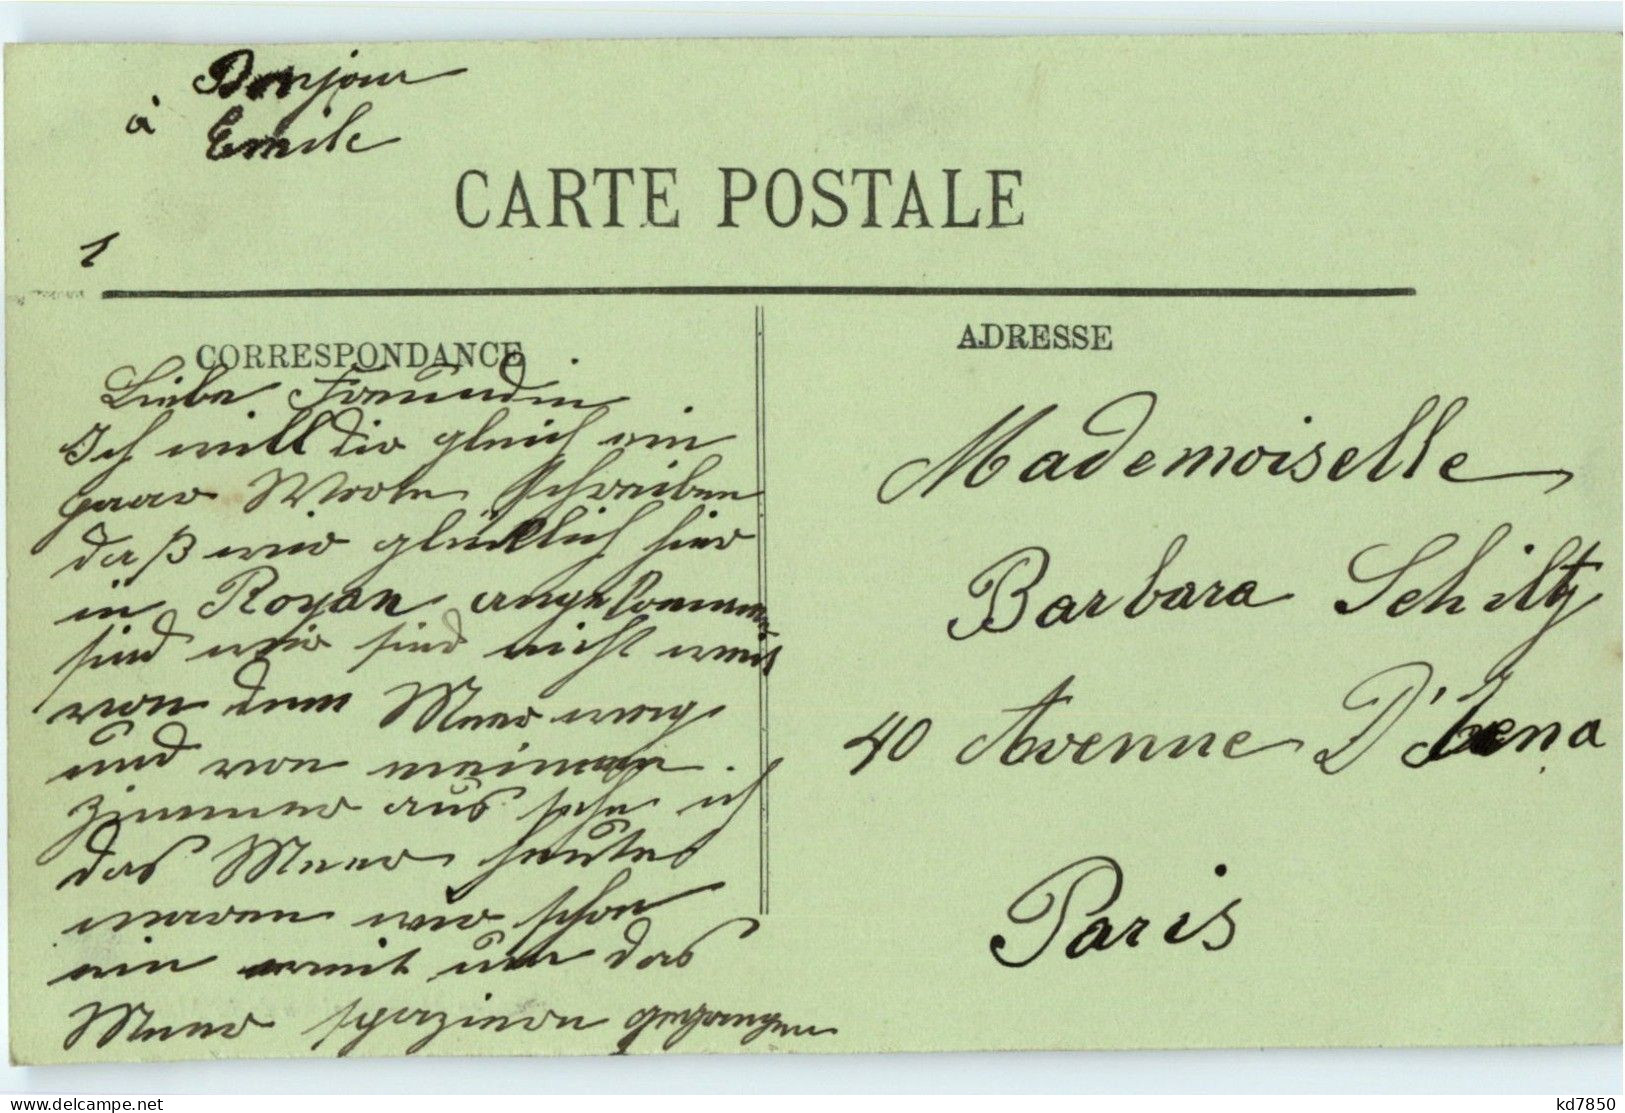 Bonjour
à Emile
CARTE POSTALE
1
CORRESPONDANCE
Liebe Freundin
Ich will Dir gleich ein
paar Worte schreiben
daß wir glücklich hier
in Royan angekommen
sind wir sind nicht weit
von dem Meer weg
und von meinem
Zimmer aus sehe ich
das Meer heute
waren wir schon
ein weit um das
Meer spazieren gegangen
ADRESSE
Mademoiselle
Barbara Schiltz
40 Avenue D'Iena
Paris
delcampe.net
kd7850